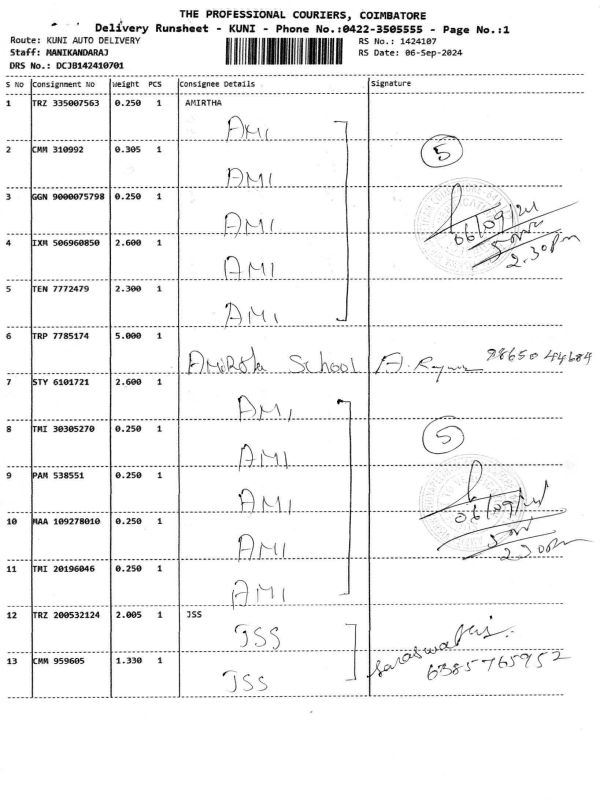 THE PROFESSIONAL COURIERS, COIMBATORE
Delivery Runsheet - KUNI - Phone No.:0422-3505555 - Page No.:1
Route: KUNI AUTO DELIVERY RS No.: 1424107
Staff: MANIKANDARAJ RS Date: 06-Sep-2024
DRS No.: DCJB142410701
S No Consignment No Weight PCS Consignee Details Signature
1 TRZ 335007563 0.250 1 AMIRTHA
AMI
2 CMM 310992 0.305 1
5
AMI
3 GGN 9000075798 0.250 1
AMI 06/09/24
4 IXM 506960850 2.600 1
2.30pm
AMI
5 TEN 7772479 2.300 1
AMI
6 TRP 7785174 5.000 1
School 98650 44684
7 STY 6101721 2.600 1
AMI
8 TMI 30305270 0.250 1
5
AMI
9 PAM 538551 0.250 1
AMI 06/09/24
10 MAA 109278010 0.250 1
AMI 2.30pm
11 TMI 20196046 0.250 1
AMI
12 TRZ 200532124 2.005 1 JSS
JSS
13 CMM 959605 1.330 1
6385765952
JSS